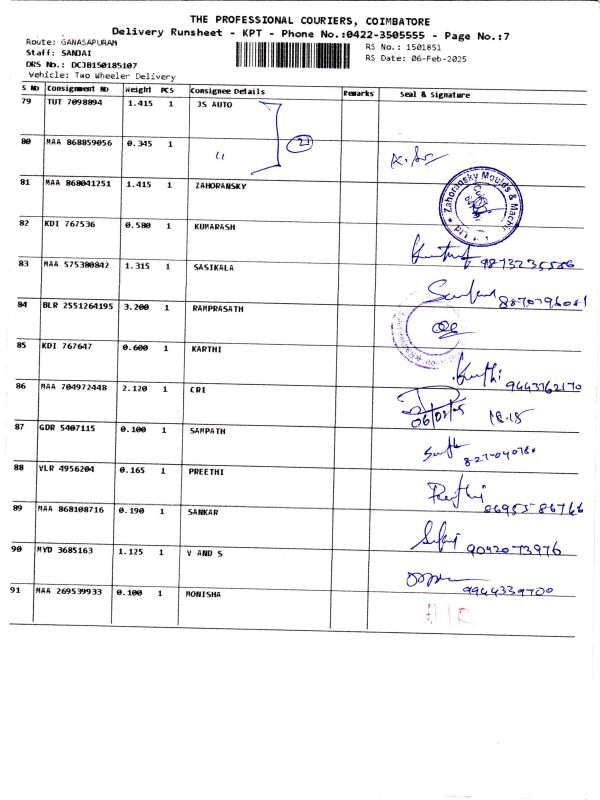 THE PROFESSIONAL COURIERS, COIMBATORE
Delivery Runsheet - KPT - Phone No.:0422-3505555 - Page No.:7
Route: GANASAPURAM
RS No.: 1501851
Staff: SANJAI
RS Date: 06-Feb-2025
DRS No.: DCJB150185107
Vehicle: Two Wheeler Delivery
S No Consignment No Weight PCS Consignee Details Remarks Seal & Signature
79 TUT 7098894 1.415 1 JS AUTO
21
80 MAA 868859056 0.345 1 "
81 MAA 868041251 1.415 1 ZAHORANSKY
Zahoransky Moulds & Machi
82 KDI 767536 0.580 1 KUMARASH
9873235586
83 MAA 575380842 1.315 1 SASIKALA
8870796081
84 BLR 2551264195 3.200 1 RAMPRASATH
85 KDI 767647 0.600 1 KARTHI
Karthi 9443762170
86 MAA 704972448 2.120 1 CRI
06/02/25 18.15
87 GDR 5407115 0.100 1 SAMPATH
88 VLR 4956204 0.165 1 PREETHI
Preethi
89 MAA 868108716 0.190 1 SANKAR
9042073976
90 MYD 3685163 1.125 1 V AND S
9944339700
91 MAA 269539933 0.100 1 MONISHA